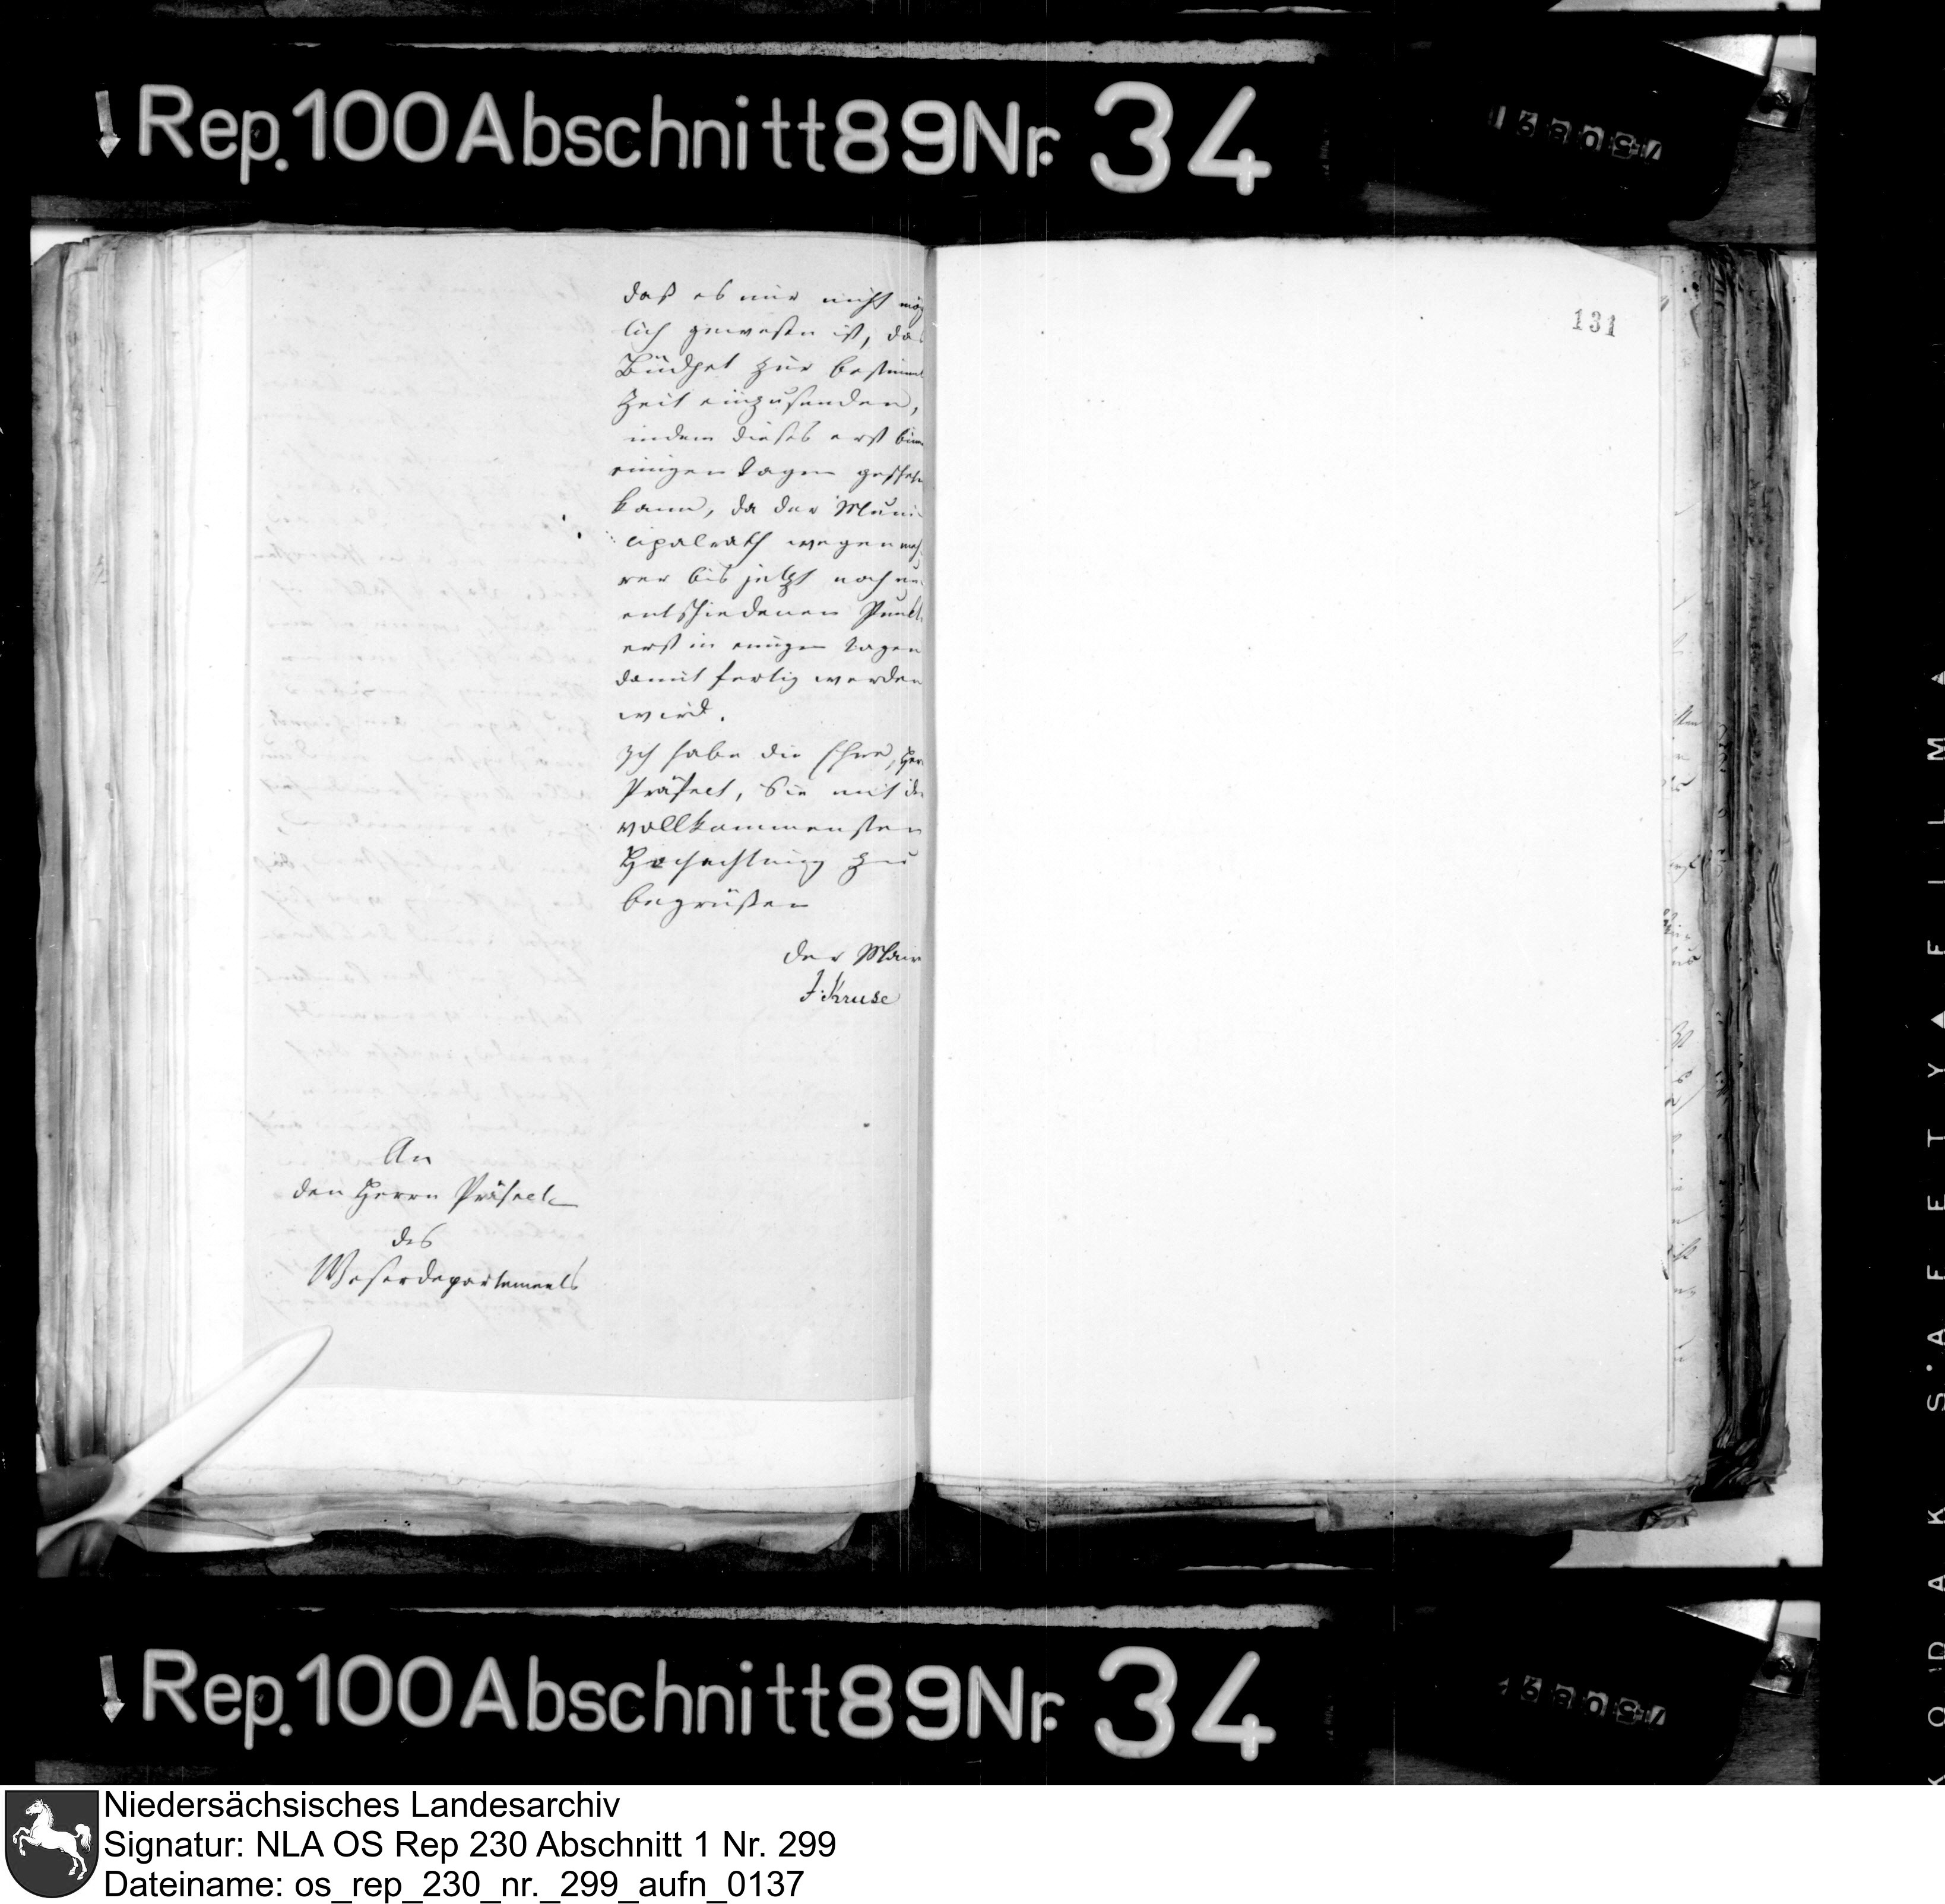 Rep. 100 Abschnitt 89 Nr. 34
daß es mir nicht mög
lich gewesen ist, das
Büdget zur bestimmt
Zeit einzusenden,
indem dieses erst binn
einigen Tagen geschehn
kann, da der Muni
cipalrath wegen meh
rer bis jetzt noch un
entschiedenen Punkt
erst in einigen Tagen
damit fertig werden
wird.
Ich habe die Ehre, Herr
Präfect, Sie mit der
vollkommensten
Hochachtung zu
begrüßen
Der Mair
J. Kruse
An
den Herrn Präfect
des
Weserdepartements
131
Rep. 100 Abschnitt 89 Nr. 34
KODAK SAFETY FILM
Niedersächsisches Landesarchiv
Signatur: NLA OS Rep 230 Abschnitt 1 Nr. 299
Dateiname: os_rep_230_nr._299_aufn_0137